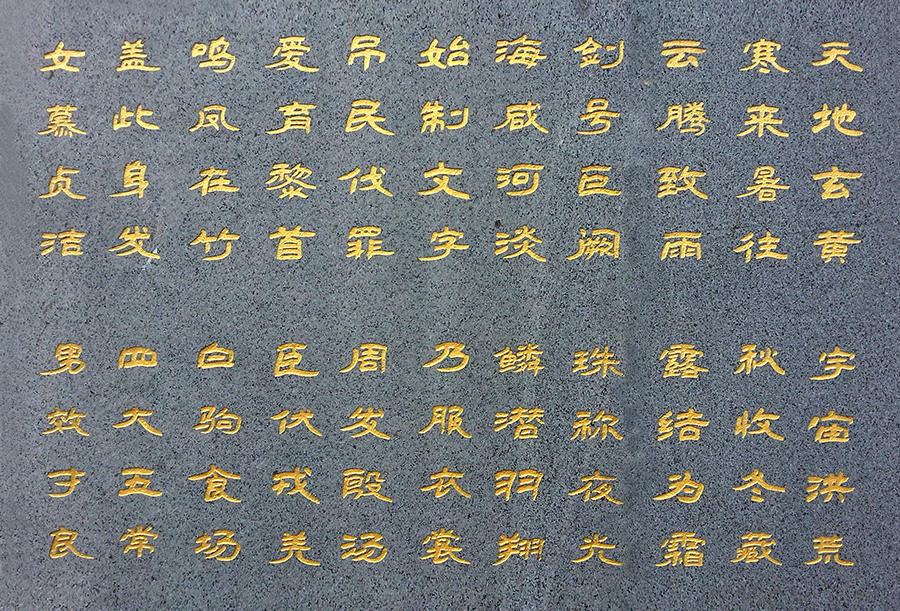 天地玄黄 宇宙洪荒
寒来暑往 秋收冬藏
云腾致雨 露结为霜
剑号巨阙 珠称夜光
海咸河淡 鳞潜羽翔
始制文字 乃服衣裳
吊民伐罪 周发殷汤
爱育黎首 臣伏戎羌
鸣凤在竹 白驹食场
盖此身发 四大五常
女慕贞洁 男效才良